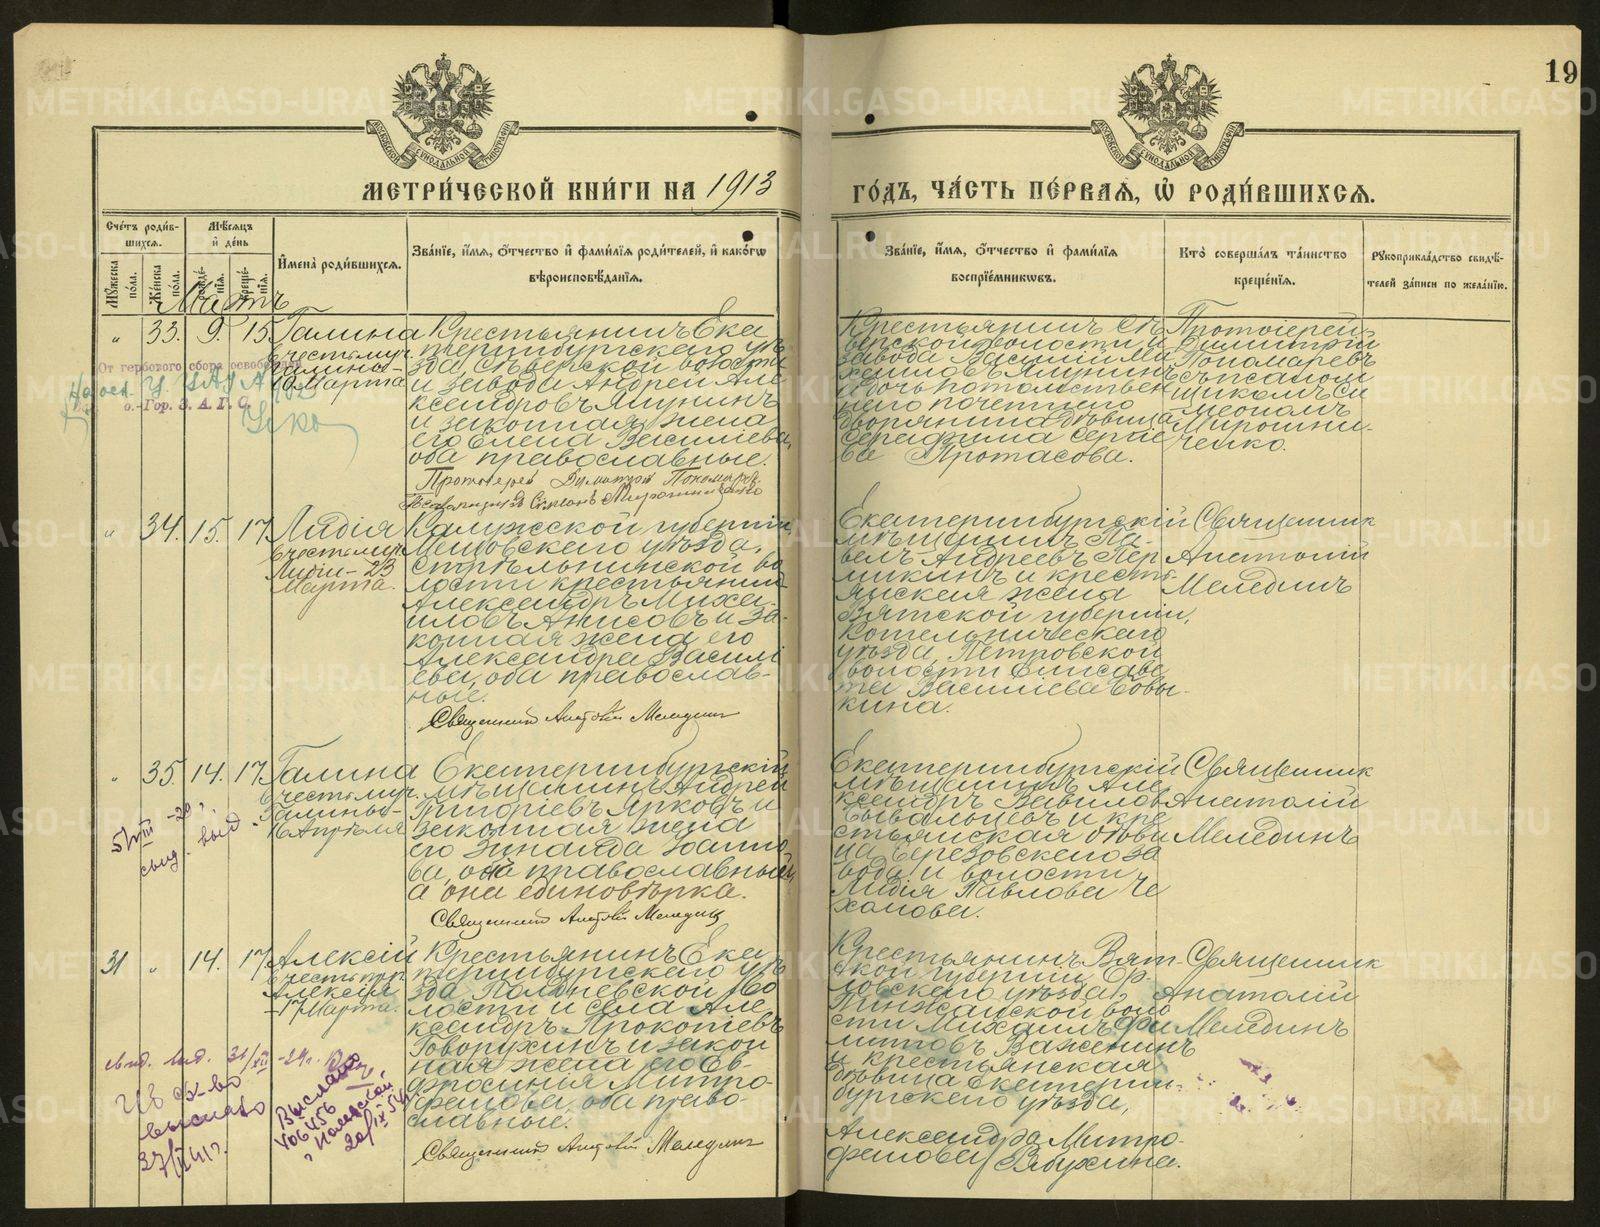 19
МЕТРИ́ЧЕСКОЙ КНИ́ГИ НА 1913
ГО́ДЪ, ЧА́СТЬ ПЕ́РВАЯ, Ѡ РОДИ́ВШИХСѦ.
Сче́тъ роди́вшихся.
Мѣсяцъ и день
Мужеска по́ла.
Же́нска по́ла.
рожде́нія.
креще́нія.
И҆мена̀ роди́вшихся.
Зва́ніе, и҆́мя, о҆́тчество и҆ фами́лія роди́телей, и҆ како́гѡ
вѣроисповѣ́данія.
Зва́ніе, и҆́мя, о҆́тчество и҆ фами́лія
воспріе́мникѡвъ.
Кто̀ соверша́лъ та́инство
креще́нія.
Рукоприкла́дство свидѣ́-
телей за́писи по жела́нію.
Мартъ
" 33. 9. 15
Галина
въ честь муч.
Галины-
16 Марта
От гербового сбора освобождено
о.-Гор. З. А. Г. С.
Крестьянинъ Ека
теринбургскаго уѣ
зда, Сѣверской волости
и завода Андрей Але
ксандровъ Ялунинъ
и законная жена
его Елена Васильева,
оба православные.
Протоіерей Димитрій Пономарев
Псаломщикъ Симеонъ Мирошниченко
Крестьянинъ Сѣ
верской волости и
завода Василій Ми
хаиловъ Ялунинъ
и дочь потомствен
наго почетнаго
дворянина дѣвица
Серафима Сергіе
ва Протасова.
Протоіерей
Димитрій
Пономаревъ
съ псалом
щикомъ Си
меономъ
Мирошни-
ченко.
" 34. 15. 17
Лидія
въ честь муч.
Лидіи - 23
Марта.
Калужской губерніи
Мещовскаго уѣзда,
Стрѣльнинской во
лости крестьянинъ
Александръ Михаи
ловъ Анисовъ и за-
конная жена его
Александра Василі
ева, оба православ-
ные.
Священникъ Анатолій Мелединъ
Екатеринбургскій
мѣщанинъ Па-
велъ Андреевъ Пер
микинъ и кресть-
янская жена
Вятской губерніи,
Котельническаго
уѣзда, Петровской
волости Елисаве
та Василіева Бовы-
кина.
Священник
Анатолій
Мелединъ
" 35. 14. 17
Галина
въ честь муч.
Галины-
16 Апрѣля
Екатеринбургскій
мѣщанинъ Андрей
Григоріевъ Ярковъ и
законная жена
его Зинаида Іоанно-
ва, онъ православный,
а она единовѣрка.
Священникъ Анатолій Мелединъ
Екатеринбургскій
мѣщанинъ Але
ксандръ Вавиловъ
Бывальцевъ и кре
стьянская дѣви
ца Березовскаго за
вода и волости
Лидія Павлова Че
халова.
Священник
Анатолій
Мелединъ
31 " 14. 17
Алексій
въ честь пр.
Алексія
- 17 Марта.
Крестьянинъ Ека
теринбургскаго уѣ
зда Полдневской во
лости и села Але
ксандръ Прокопіевъ
Говорухинъ и закон
ная жена его Ев-
фросинья Митро-
фанова, оба право-
славные.
Священникъ Анатолій Мелединъ
Крестьянинъ Вят-
ской губерніи Ор-
ловскаго уѣзда,
Пинжанской воло
сти Михаилъ Фи
липповъ Важенинъ
и крестьянская
дѣвица Екатерин-
бургскаго уѣзда,
Александра Митро-
фанова Рябухина.
Священник
Анатолій
Мелединъ